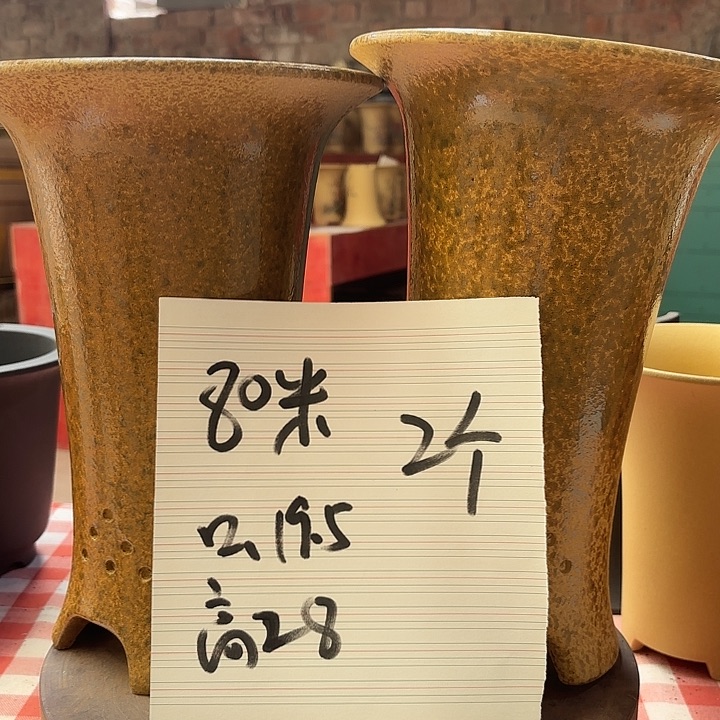 80米
2个
口19.5
高28